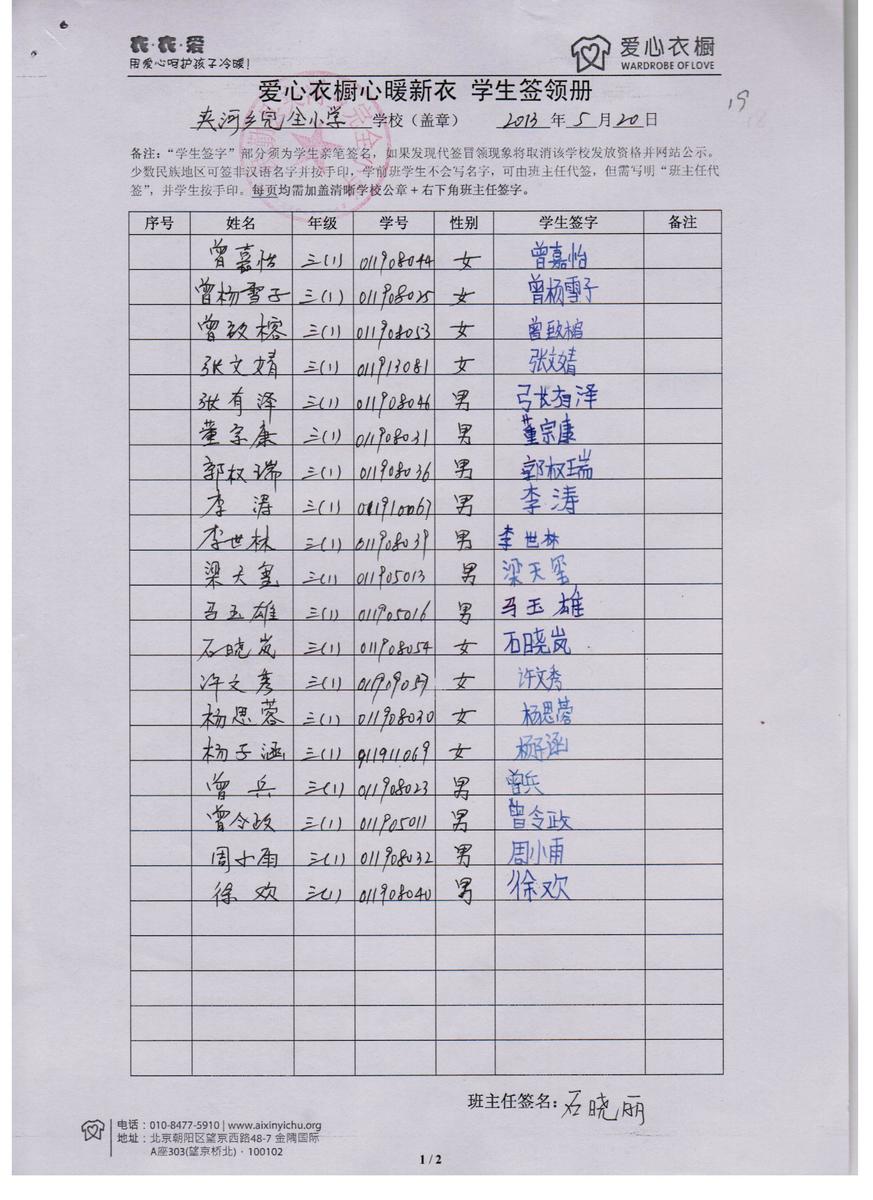 衣·衣·爱
用爱心呵护孩子冷暖!
爱心衣橱
WARDROBE OF LOVE
爱心衣橱心暖新衣 学生签领册
19
夹河乡完全小学 学校（盖章） 2013 年 5 月 20 日
备注：“学生签字”部分须为学生亲笔签名，如果发现代签冒领现象将取消该学校发放资格并网站公示。
少数民族地区可签非汉语名字并按手印，学前班学生不会写名字，可由班主任代签，但需写明“班主任代
签”，并学生按手印。每页均需加盖清晰学校公章+右下角班主任签字。
序号 姓名 年级 学号 性别 学生签字 备注
曾嘉怡 三(1) 011908044 女 曾嘉怡
曾杨雪子 三(1) 011908025 女 曾杨雪子
曾致榕 三(1) 011908053 女 曾致榕
张文婧 三(1) 011913081 女 张文婧
张有泽 三(1) 011908046 男 张有泽
董宗康 三(1) 011908031 男 董宗康
郭权瑞 三(1) 011908036 男 郭权瑞
李涛 三(1) 011910067 男 李涛
李世林 三(1) 011908039 男 李世林
梁天玺 三(1) 011905013 男 梁天玺
马玉雄 三(1) 011905016 男 马玉雄
石晓岚 三(1) 011908054 女 石晓岚
许文秀 三(1) 女 许文秀
杨思蓉 三(1) 011908030 女 杨思蓉
杨子涵 三(1) 011911069 女 杨子涵
曾兵 三(1) 011908023 男 曾兵
曾令政 三(1) 011905011 男 曾令政
周小雨 三(1) 011908032 男 周小雨
徐欢 三(1) 011908040 男 徐欢
班主任签名：石晓丽
电话：010-8477-5910 | www.aixinyichu.org
地址：北京朝阳区望京西路48-7 金隅国际
A座303(望京桥北)·100102
1 / 2